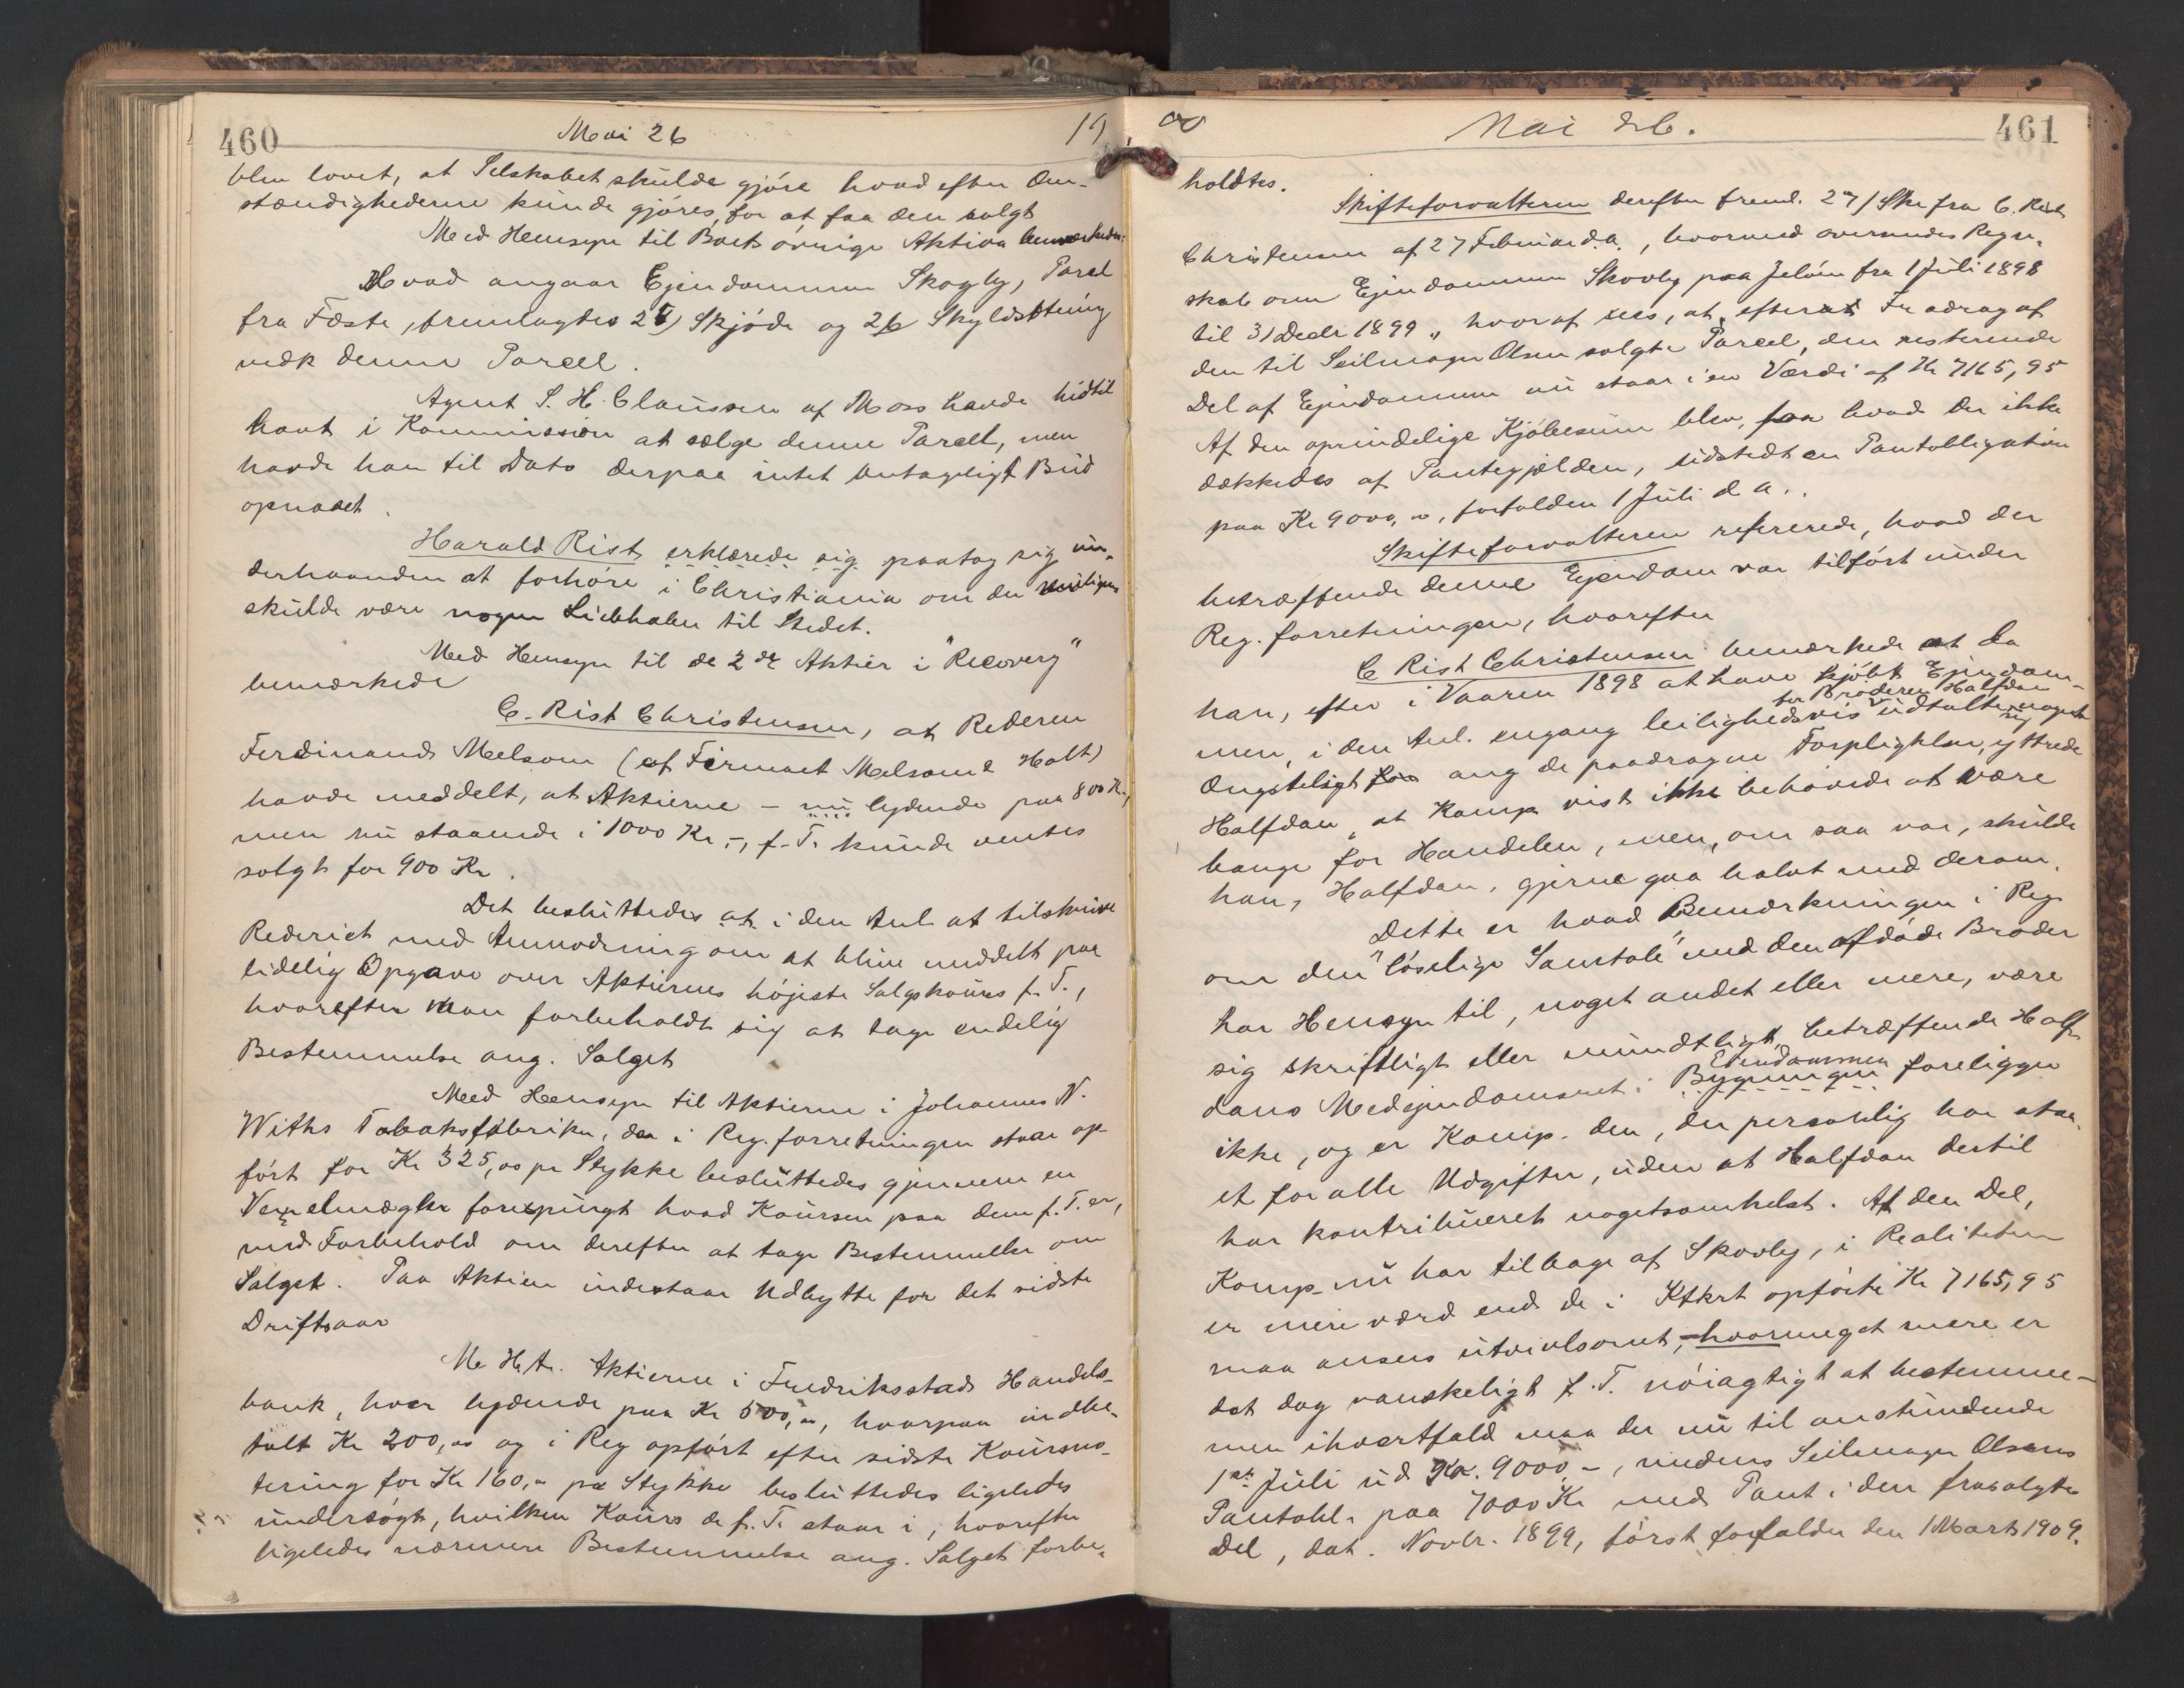 460
Mai 26
19
blev lovet, at Selskabet skulde gjöre hvad efter Om-
stændighederne kunde gjöres, for at faa den solgt
Med Hensyn til Boets övrige Aktiva bemærkedes:
Hvad angaar Ejendommen Skogly, Parcel
fra Fæste, fremlagdes 25) Skjöde og 26 Skyldsætning
vedk denne Parcel.
Agent S. H. Claussen af Moss havde hidtil
havt i Kommission at sælge denne Parcel, men
havde han til Dato derpaa intet antageligt Bud
opnaaet.
Harald Rist erklærede sig paatog sig un-
derhaanden at forhöre i Christiania om der muligens
skulde være nogen Liebhaber til Stedet.
Med Hensyn til de 2 de Aktier i "Recovery"
bemærkede
C. Rist Christensen, at Rederen
Ferdinand Melsom (af Firmaet Melsom & Holt)
havde meddelt, at Aktierne – nu lydende paa 800 Kr,
men nu staaende i 1000 Kr –, f. T. kunde ventes
solgt for 900 Kr.
Det besluttedes at i den Anl at tilskrive
Rederiet med Anmodning om at blive meddelt paa
lidelig Opgave over Aktiernes höjeste Salgskours f. T.,
hvorefter man forbeholdt sig at tage endelig
Bestemmelse ang. Salget
Med Hensyn til Aktierne i Johannes N.
Withs Tobaksfabrikn, der i Reg. forretningen staar op-
fört for Kr 325,00 pr Stykke besluttedes gjennem en
Vexelmægler forespurgt hvad Koursen paa dem f. T. er,
med Forbehold om derefter at tage Bestemmelse om
Salget. Paa Aktien indestaar Udbytte for det sidste
Driftsaar
M. H. t. Aktierne i Fredriksstads Handels-
bank, hver lydende paa Kr 500,00, hvorpaa indbe-
talt Kr 200,00 og i Reg opfört efter sidste Koursno-
tering for Kr 160,00 pr Stykke besluttedes ligeledes
undersögt, hvilken Kours de f. T. staar i, hvorefter
ligeledes nærmere Bestemmelse ang. Salget forbe-
00
Mai 26.
461
holdtes.
Skifteforvalteren derefter freml. 27) Skr fra C. Rist
Christensen af 27 Februar d. a., hvormed oversendes Regn-
skab om Ejendommen Skovly paa Jelöen fra 1 Juli 1898
til 31 Decbr 1899, hvoraf sees, at efterat Fradrag af
den til Seilmager Olsen solgte Parcel, den resterende
Del af Ejendommen nu staar i en Værdi af Kr 7165,95
Af den oprindelige Kjöbesum blev, for hvad der ikke
dækkedes af Pantegjælden, udstedt en Pantobligation
paa Kr 9000,00, forfalden 1 Juli d. a..
Skifteforvalteren refererede, hvad der
betræffende denne Ejendom var tilfört under
Reg. forretningen, hvorefter
C Rist Christensen bemærkede at da
han, efter i Vaaren 1898 at have kjöbt Ejendom-
for Broderen Halfdan
men, i den Anl. engang leilighedsvis udtalte sig noget
Ængsteligt ang de paadragne Forpligtelser, yttrede
Halfdan, at Komp vist ikke behövede at være
bange for Handelen, men, om saa var, skulde
han, Halfdan, gjerne gaa halvt med derom.
Dette er hvad Bemærkningen i Reg
om den "löselige Samtale" med den afdöde Broder
har Hensyn til, noget andet eller mere, være
sig skriftligt eller mundtligt, betræffende Half-
Eiendommen
dans Medejendomsret i Bygningen foreligger
ikke, og er Komp. den, der personlig har staa-
et for alle Udgifter, uden at Halfdan dertil
har kontribueret nogetsomhelst. At den Del,
Komp. nu har tilbage af Skovly, i Realiteten
er mere værd end de i Ktkrt opförte Kr 7165,95
maa ansees utvivlsomt, – hvormeget mere er
det dog vanskeligt f. T. nöiagtigt at bestemme –
men ihvertfald maa der nu til anstundende
1ste Juli ud Kr. 9000 –, medens Seilmager Olsens
Pantobl. paa 7000 Kr med Pant i den frasolgte
Del, dat. Novbr. 1899, först forfalder den 1 Marts 1909.